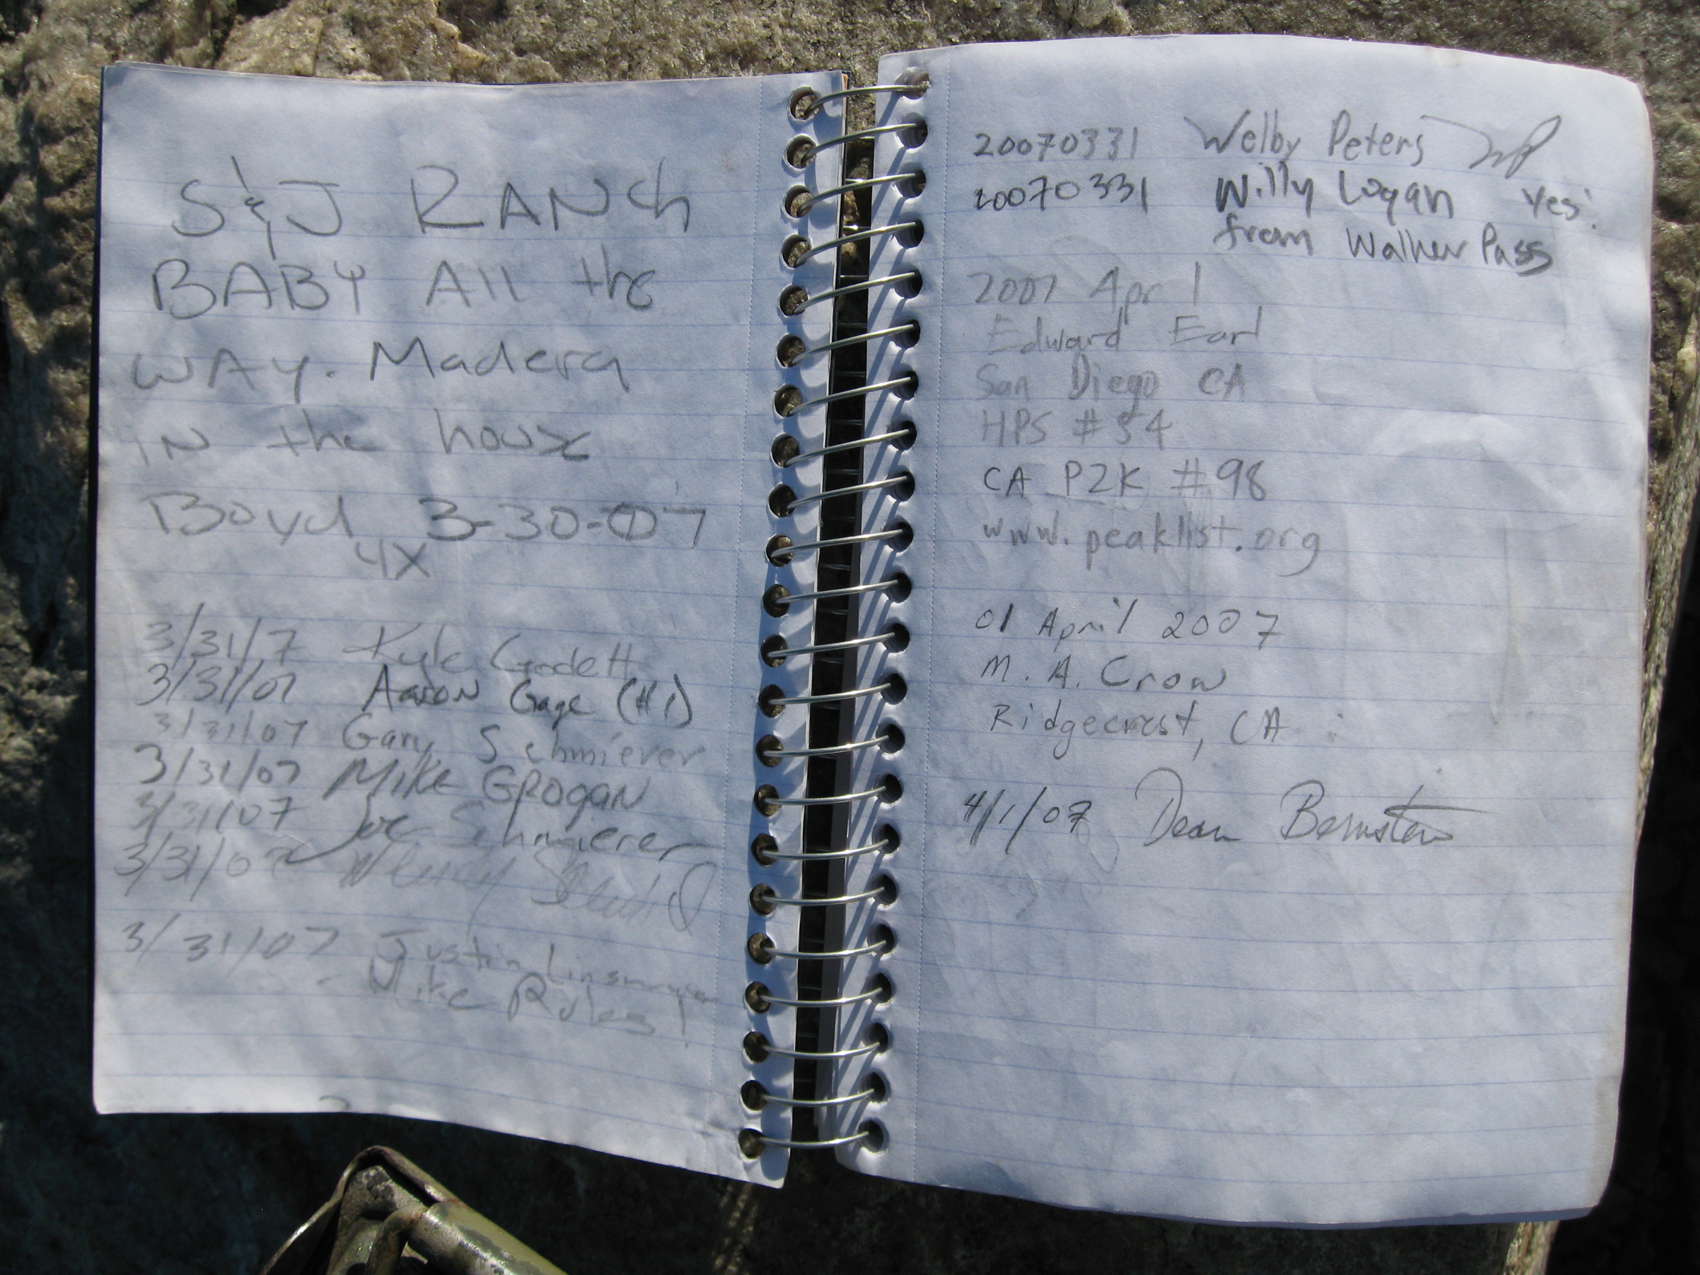 S & J RANch
BABY All the
WAY. Madera
iN the house
Boyd 3-30-07
4X
3/31/7 Kyle
3/31/07 Aaron Gage (#1)
3/31/07 Gary Schmierer
3/31/07 Mike GROgAN
3/31/07 Joe Schmierer
3/31/07
3/31/07 Justin
Mike Rules!
20070331 Welby Peters WP
20070331 Willy Logan Yes!
from Walker Pass
2007 April
Edward Earl
San Diego CA
HPS #54
CA P2K #98
www.peaklist.org
01 April 2007
M. A. Crow
Ridgecrest, CA
4/1/07 Dean Bernstein